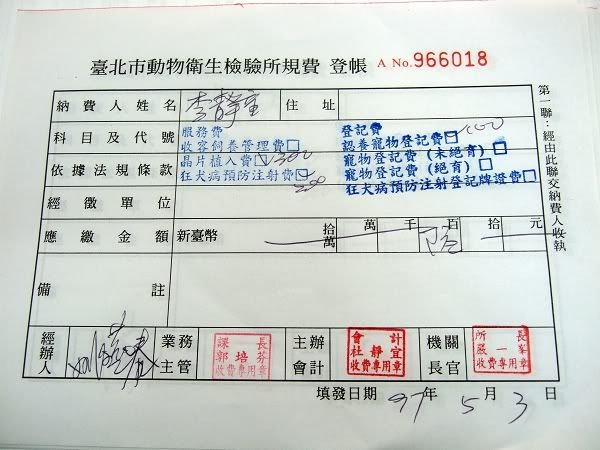 臺北市動物衛生檢驗所規費 登帳 A No.966018
納費人姓名 李靜 住址
科目及代號 服務費 登記費
收容飼養管理費□ 認養寵物登記費☑ 100
依據法規條款 晶片植入費☑ 300 寵物登記費 (未絕育) □
狂犬病預防注射費☑ 200 寵物登記費 (絕育) □
狂犬病預防注射登記牌證費□
經徵單位
應繳金額 新臺幣 拾萬 萬 千 陸 百 拾 元
備註
經辦人 業務主管 課長 郭培芬 收費專用章 主辦會計 會計 杜靜宜 收費專用章 機關長官 所長 嚴一峯 收費專用章
填發日期 97年 5月 3日
第一聯:經由此聯交納費人收執